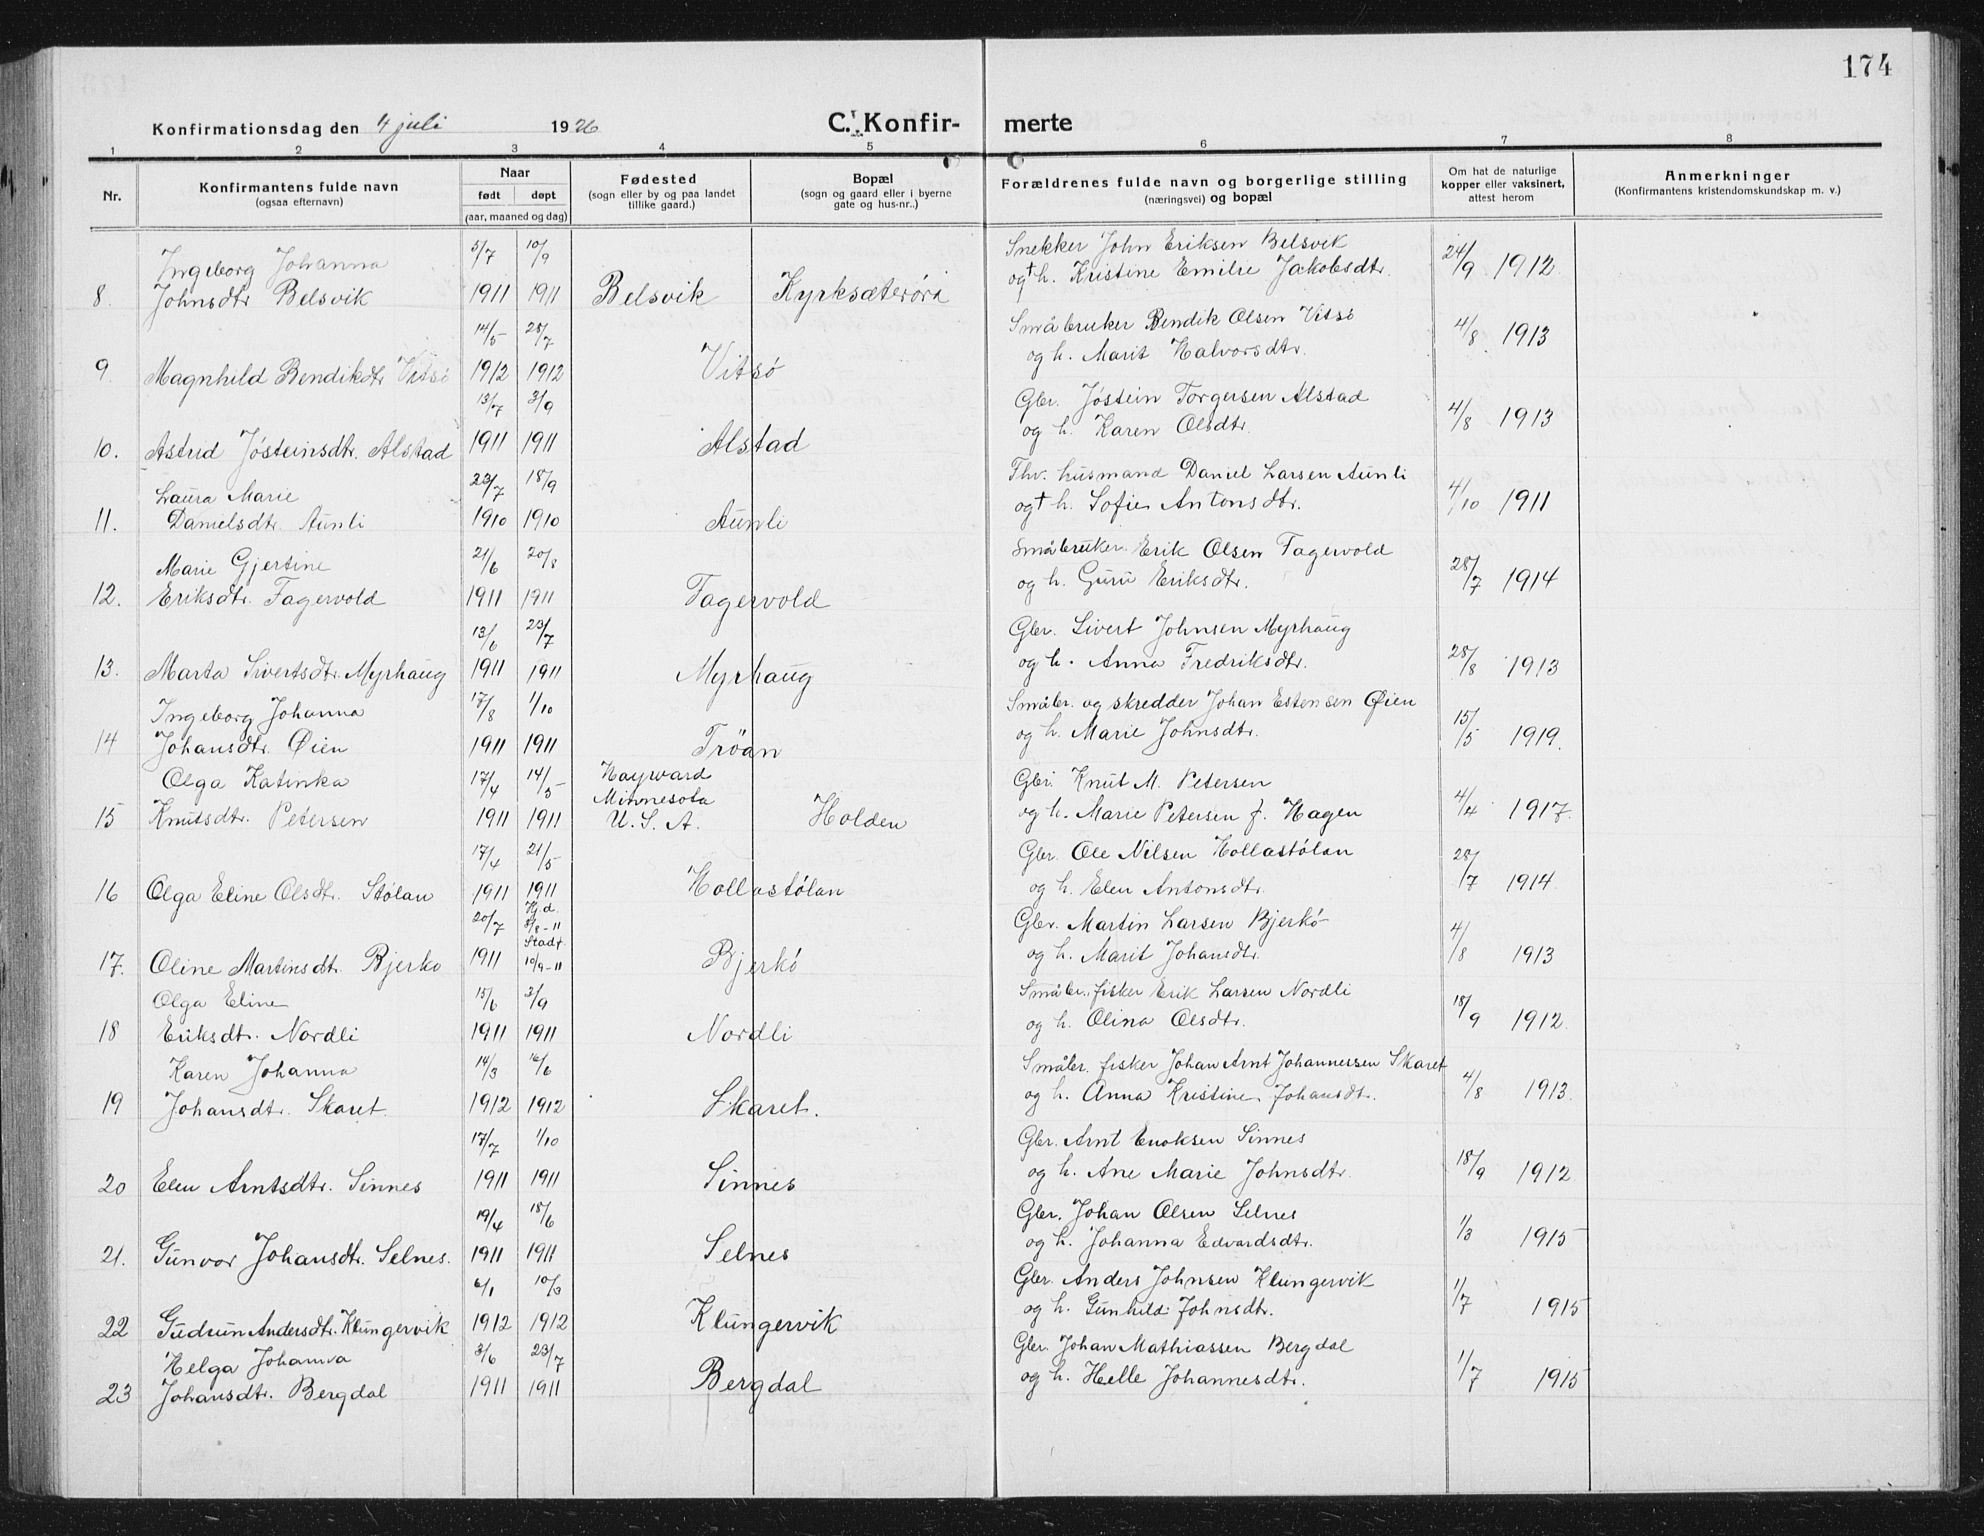 174
Konfirmationsdag den 4 juli 1926
C. Konfir- merte
1 2 3 4 5 6 7 8
Nr.
Konfirmantens fulde navn
(ogsaa efternavn)
Naar
født døpt
(aar, maaned og dag)
Fødested
(sogn eller by og paa landet
tillike gaard.)
Bopæl
(sogn og gaard eller i byerne
gate og hus-nr..)
Forældrenes fulde navn og borgerlige stilling
(næringsvei) og bopæl
Om hat de naturlige
kopper eller vaksinert,
attest herom
Anmerkninger
(Konfirmantens kristendomskundskap m. v.)
Ingeborg Johanna 5/7 10/9 Snekker John Eriksen Belsvik
8. Johnsdtr Belsvik 1911 1911 Belsvik Kyrksæterøra og † h. Kristine Emilie Jakobsdtr. 24/9 1912
14/5 28/7 Småbruker Bendik Olsen Vitsø
9. Magnhild Bendiksdtr Vitsø 1912 1912 Vitsø og h. Marit Halvorsdtr. 4/8 1913
13/7 3/9 Gbr. Jøstein Torgersen Alstad
10. Astrid Jøsteinsdtr. Alstad 1911 1911 Alstad og h. Karen Olsdtr. 4/8 1913
Laura Marie 23/7 18/9 Fhv. husmand Daniel Larsen Aunli
11. Danielsdtr. Aunli 1910 1910 Aunli og † h. Sofie Antonsdtr. 4/10 1911
Marie Gjertine 21/6 20/8 Småbruker Erik Olsen Fagervold
12. Eriksdtr. Fagervold 1911 1911 Fagervold og h. Guru Eriksdtr. 28/7 1914
13/6 23/7 Gbr. Sivert Johnsen Myrhaug
13. Marta Sivertsdtr. Myrhaug 1911 1911 Myrhaug og h. Anna Fredriksdtr. 28/8 1913
Ingeborg Johanna 17/8 1/10 Småbr. og skredder Johan Estensen Øien
14 Johansdtr. Øien 1911 1911 Trøan og h. Marie Johnsdtr. 15/5 1919.
Olga Katinka 17/4 14/5 Hayward Minnesota Gbr. Knut M. Petersen
15 Knutsdtr. Petersen 1911 1911 U. S. A. Holden og h. Marie Petersen f. Hagen 4/4 1917.
17/4 21/5 Gbr. Ole Nilsen Hollastølan
16 Olga Eline Olsdtr. Stølan 1911 1911 Hollastølan og h. Elen Antonsdtr. 28/7 1914
20/7 Hjd. 8/8-11 Gbr. Martin Larsen Bjerkø
17. Oline Martinsdtr. Bjerkø 1911 Stadf. 10/9-11 Bjerkø og h. Marit Johansdtr. 4/8 1913
Olga Eline 15/6 3/9 Småbr., fisker Erik Larsen Nordli
18 Eriksdtr. Nordli 1911 1911 Nordli og h. Olina Olsdtr. 18/9 1912.
Karen Johanna 14/3 16/6 Småbr. fisker Johan Arnt Johannessen Skaret
19 Johansdtr. Skaret 1912 1912 Skaret. og h. Anna Kristine Johansdtr. 4/8 1913.
17/7 1/10 Gbr. Arnt Enoksen Sinnes
20 Elen Arntsdtr. Sinnes 1911 1911 Sinnes og h. Ane Marie Johnsdtr. 18/9 1912
19/4 18/6 Gbr. Johan Olsen Selnes
21. Gunvor Johansdtr. Selnes. 1911 1911 Selnes og h. Johanna Edvardsdtr. 1/3 1915
6/1 10/3 Gbr. Anders Johnsen Klungervik
22 Gudrun Andersdtr. Klungervik 1912 1912 Klungervik og h. Gunhild Johnsdtr. 1/7 1915
Helga Johanna 3/6 23/7 Gbr. Johan Mathiassen Bergdal
23 Johansdtr. Bergdal 1911 1911 Bergdal og h. Helle Johannesdtr. 1/7 1915